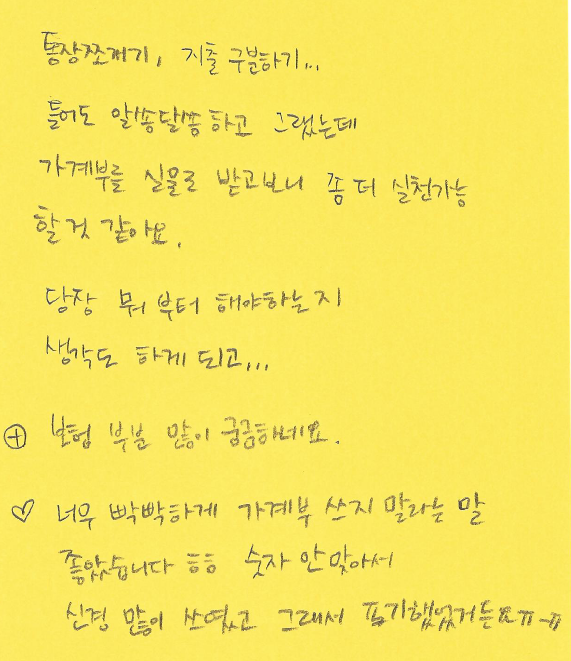 통장쪼개기, 지출 구분하기...
들어도 알쏭달쏭하고 그랬는데
가계부를 실물로 받고보니 좀 더 실천가능
할 것 같아요.
당장 뭐 부터 해야하는지
생각도 하게 되고...
⊕ 보험 부분 많이 궁금하네요.
♡ 너무 빡빡하게 가계부 쓰지 말라는 말
좋았습니다 ㅎㅎ 숫자 안맞아서
신경 많이 쓰였고 그래서 포기했었거든요ㅠ-ㅠ